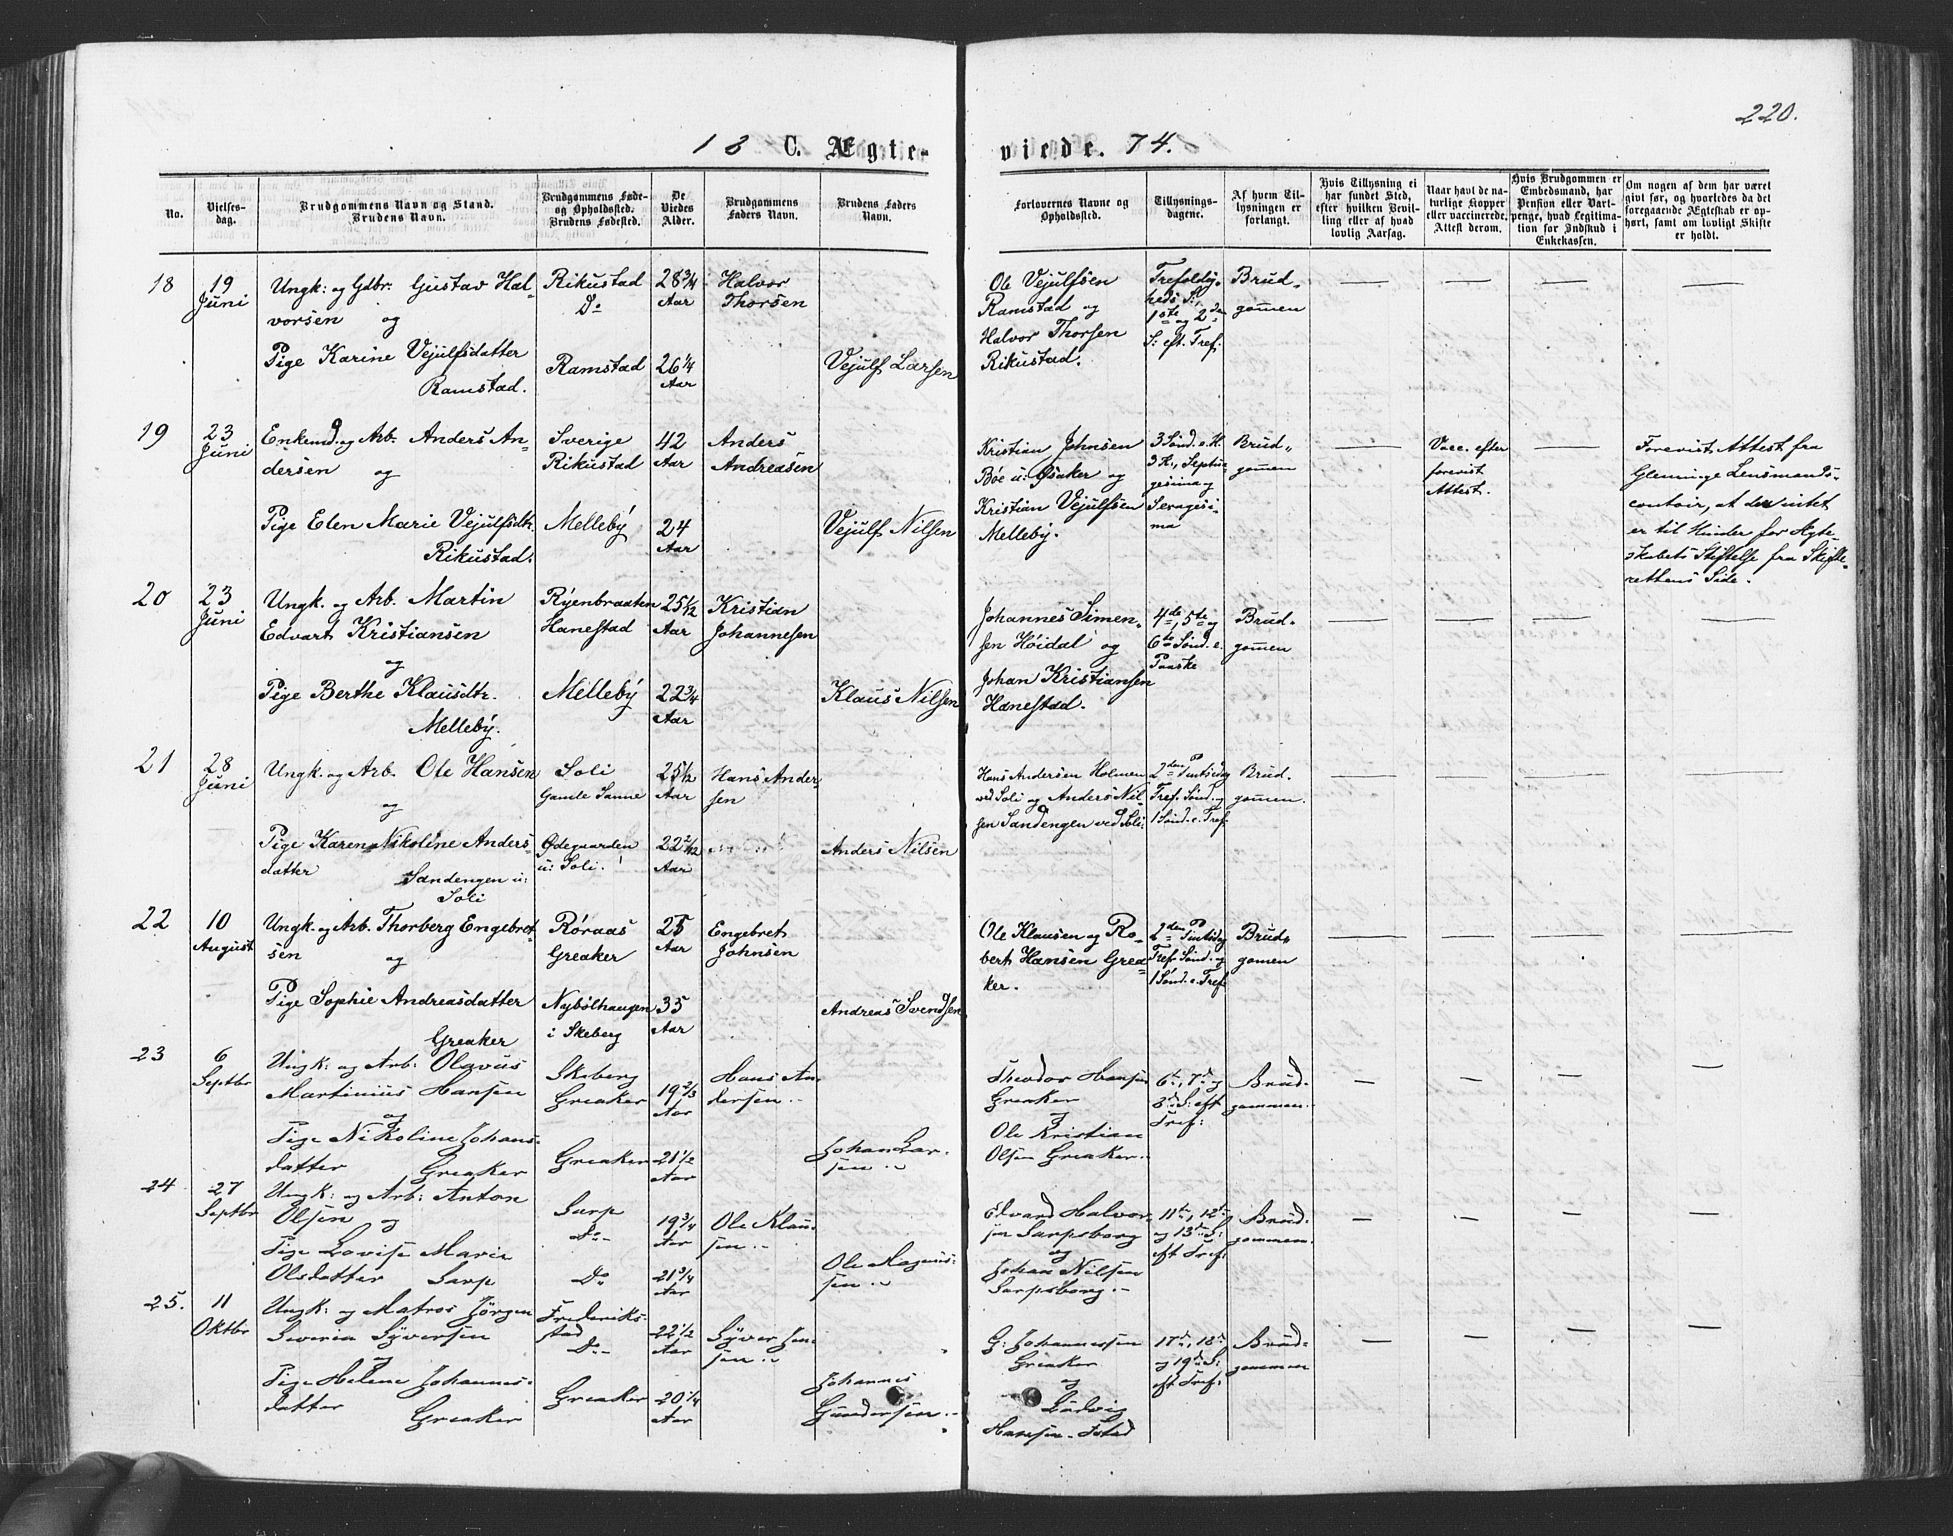 220.
18 C. Ægte- viede. 74.
No.
Vielses-
dag.
Brudgommens Navn og Stand.
Brudens Navn.
Brudgommens Føde-
og Opholdssted.
Brudens Fødested.
De
Viedes
Alder.
Brudgommens
Faders Navn.
Brudens Faders
Navn.
Forlovernes Navne og
Opholdssted.
Tillysnings-
dagene.
Af hvem Til-
lysningen er
forlangt.
Hvis Tillysning ei
har fundet Sted,
efter hvilken Bevil-
ling eller af hvad
lovlig Aarsag.
Naar havt de na-
turlige Kopper
eller vaccinerede.
Attest derom.
Hvis Brudgommen er
Embedsmand, har
Pension eller Vart-
penge, hvad Legitima-
tion for Indskud i
Enkekassen.
Om nogen af dem har været
givt før, og hvortedes da det
foregaaende Ægteskab er op-
hørt, samt om lovligt Skifte
er holdt.
18
19
Juni
Ungk: og Gdbr. Gustav Hal-
vorsen og
Pige Karine Vejulfsdatter
Ramstad.
Rikustad
Do
Ramstad
28 3/4
Aar
26 1/4
Aar
Halvor
Thorsen
Vejulf Larsen
Ole Vejulfsen
Ramstad og
Halvor Thorsen
Rikustad.
Trefoldig-
heds S.,
1ste og 2den
S: eft. Tref:
Brud-
gommen
19
23
Juni
Enkemd. og Arb. Anders An-
dersen og
Pige Elen Marie Vejulfsdtr.
Rikustad.
Sverige
Rikustad
Melleby
42
Aar
24
Aar
Anders
Andreasen
Vejulf Nilsen
Kristian Johnsen
Böe u: Øsaker og
Kristian Vejulfsen
Melleby.
3 Sönd. e. H.
3 K., Septua-
gesima og
Sexagesi-
ma
Brud-
gommen
Vacc. efter
forevist
Attest.
Forevist Attest fra
Glemminge Lensmands-
contoir, at der intet
er til Hinder for Ægte-
skabets Stiftelse fra Skifte-
rettens Side.
20
23
Juni
Ungk. og Arb. Martin
Edvart Kristiansen
og
Pige Berthe Klausdtr.
Melleby.
Ryenbraaten
Hanestad
Melleby
25 1/2
Aar
22 3/4
Aar
Kristian
Johannesen
Klaus Nilsen
Johannes Simen-
sen Höidal og
Johan Kristiansen
Hanestad.
4de, 5te og
6te Sönd. e.
Paaske
Brud-
gommen
21
28
Juni
Ungk. og Arb. Ole Hansen
og
Pige Karen Nikoline Anders-
datter Sandengen u:
Soli
Soli
Gamle Sanne
Ødegaarden
u: Soli.
25 1/2
Aar
22 2/12
Aar
Hans Ander-
sen
Anders Nilsen
Hans Andersen Holmen
ved Soli og Anders Nil-
sen Sandengen ved Soli
2den Pintsedag
Tref. Sönd. og
1 Sönd. e. Tref.
Brud-
gommen.
22
10
August
Ungk. og Arb. Thorberg Engebret-
sen og
Pige Sophie Andreasdatter
Greaker
Röraas
Greaker
Nybölhaugen
i Skeberg
25
Aar
35
Aar
Engebret
Johnsen
Andreas Svendsen
Ole Klausen og Ro-
bert Hansen Grea-
ker.
2den Pintsedag
Tref Sönd. og
1 Sönd. e. Tref.
Brud-
gommen
23
6
Septbr
Ungk: og Arb: Olavus
Martinius Hansen
og
Pige Nikoline Johans-
datter Greaker
Skeberg
Greaker
Greaker
19 2/3
Aar
21 1/2
Aar
Hans An-
dersen
Johan Lar-
sen
Theodor Hansen
Greaker
og
Ole Kristian
Olsen Greaker
6te, 7de og
8de S: eft
Tref:
Brud-
gommen
24
27
Septbr
Ungk: og Arb: Anton
Olsen og
Pige Lovise Marie
Olsdatter Sarp
Sarp
Do
Do
19 3/4
Aar
21 3/4
Aar
Ole Klau-
sen
Ole Magnus-
sen
Edvard Halvor-
sen Sarpsborg
og
Johan Nilsen
Sarpsborg.
11te, 12te
og 13de S:
eft Tref:
Brud-
gommen.
25.
11
Oktbr
Ungk: og Matros Jörgen
Severin Syversen
og
Pige Helene Johannes-
datter Greaker
Frederiks-
stad
Do
Greaker
22 1/2
Aar
20 1/4
Aar
Syver Jen-
sen
Johannes
Gundersen
G: Johannessen
Greaker
og
Ludvig
Hansen
17de, 18de
og 19de S:
eft Tref:
Brud-
gommen